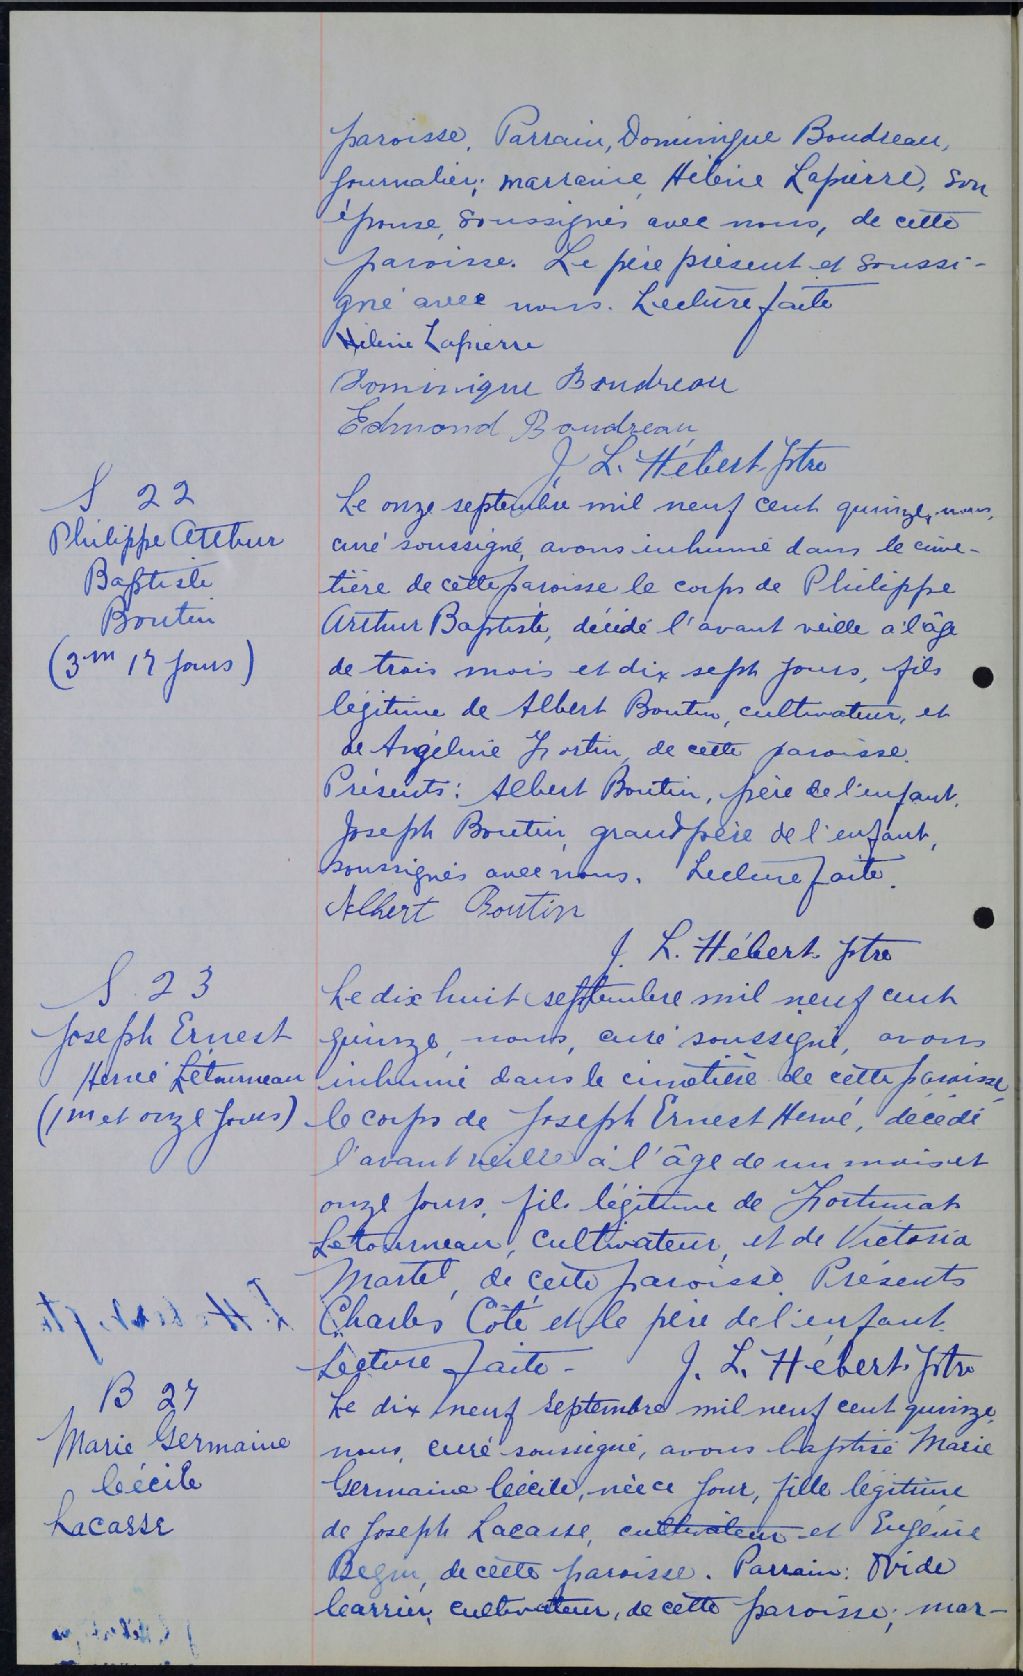 paroisse. Parrain, Dominique Boudreau,
journalier; marraine, Hélène Lapierre, son
épouse, soussignés avec nous, de cette
paroisse. Le père présent et soussi-
gné avec nous. Lecture faite
Hélène Lapierre
Dominique Boudreau
Edmond Boudreau
J. L. Hébert, ptre
S 22
Philippe Arthur
Baptiste
Boutin
(3m 17 jours)
Le onze septembre mil neuf cent quinze, nous,
curé soussigné, avons inhumé dans le cime-
tière de cette paroisse le corps de Philippe
Arthur Baptiste, décédé l'avant veille à l'âge
de trois mois et dix sept jours, fils
légitime de Albert Boutin, cultivateur, et
de Angéline Fortin, de cette paroisse.
Présents: Albert Boutin, père de l'enfant,
Joseph Boutin, grand père de l'enfant,
soussignés avec nous. Lecture faite.
Albert Boutin
J. L. Hébert ptre
S 23
Joseph Ernest
Hervé Létourneau
(1m et onze jours)
Le dix huit septembre mil neuf cent
quinze, nous, curé soussigné, avons
inhumé dans le cimetière de cette paroisse,
le corps de Joseph Ernest Hervé, décédé
l'avant veille à l'âge de un mois et
onze jours, fils légitime de Fortunat
Letourneau, cultivateur, et de Victoria
Martel, de cette paroisse. Présents
Charles Côté et le père de l'enfant.
Lecture faite - J. L. Hébert, ptre
B 27
Marie Germaine
Cécile
Lacasse
Le dix neuf septembre mil neuf cent quinze,
nous, curé soussigné, avons baptisé Marie
Germaine Cécile, née ce jour, fille légitime
de Joseph Lacasse, cultivateur et Eugénie
Begin, de cette paroisse. Parrain: Ovide
Carrier, cultivateur, de cette paroisse; mar-